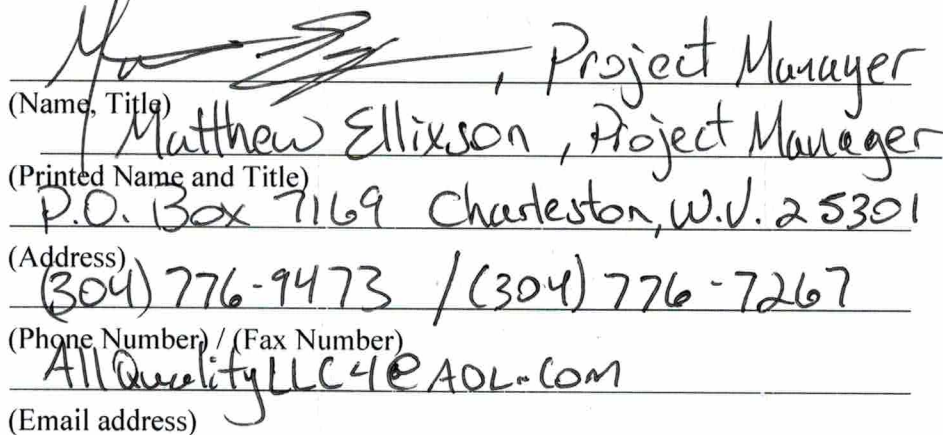 , Project Manager
(Name, Title)
Matthew Ellixson, Project Manager
(Printed Name and Title)
P.O. Box 7169 Charleston, W.V. 25301
(Address)
(304) 776-9473 / (304) 776-7267
(Phone Number) / (Fax Number)
AllQualityLLC4@AOL.COM
(Email address)